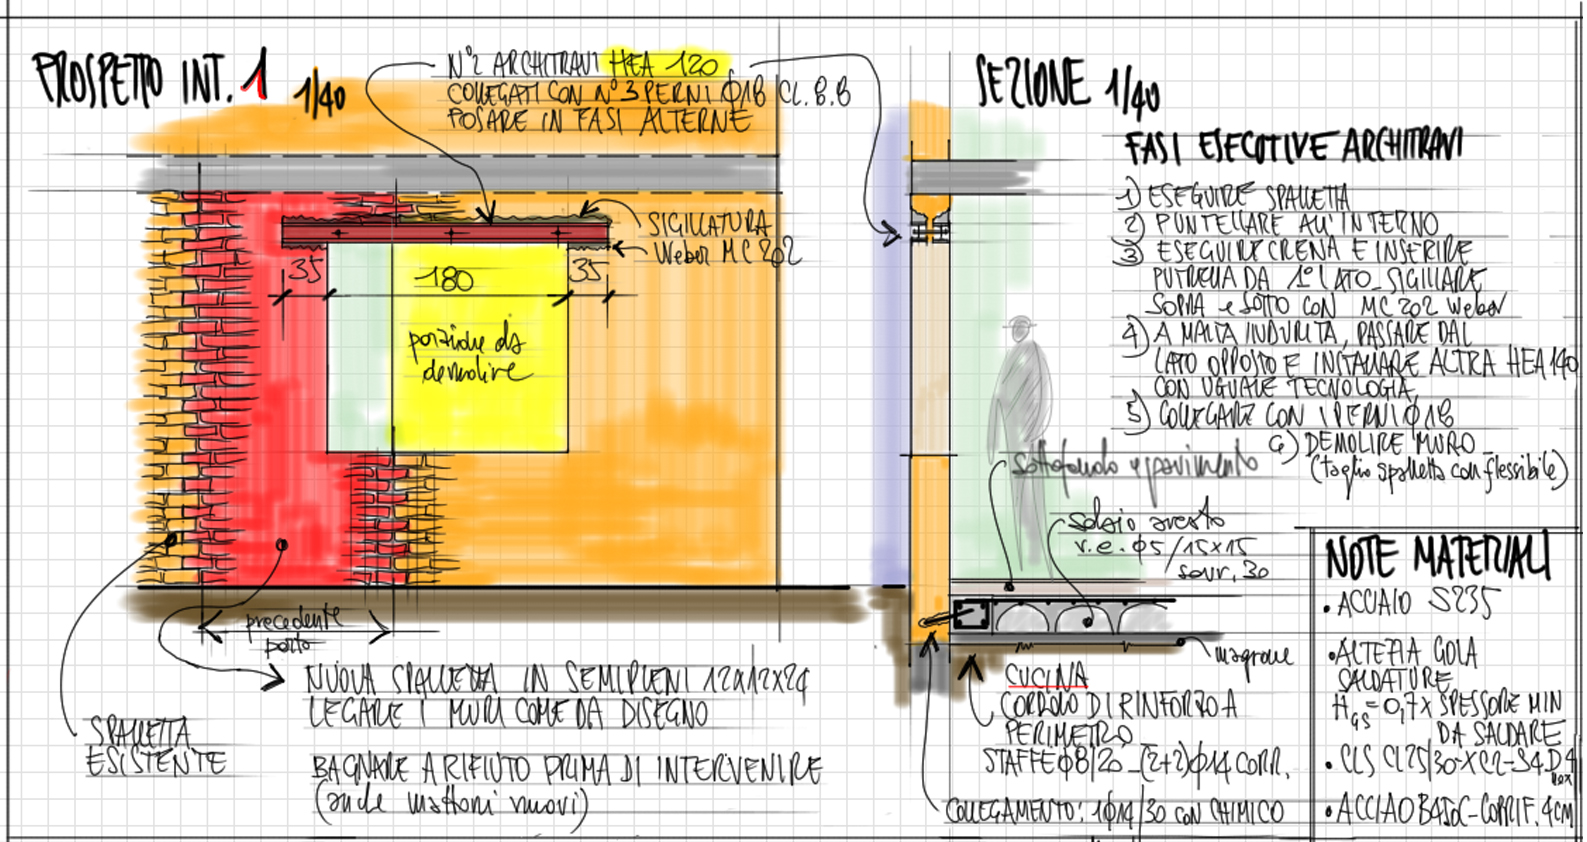 PROSPETTO INT. 1 1/40
N°2 ARCHITRAVI HEA 120
COLLEGATI CON N°3 PERNI Ø18 CL. 8.8
POSARE IN FASI ALTERNE
SIGILLATURA
Weber MC 202
35
180
35
porzione da
demolire
precedente
porta
NUOVA SPALLETTA IN SEMIPIENI 12x12x24
LEGARE I MURI COME DA DISEGNO
BAGNARE A RIFIUTO PRIMA DI INTERVENIRE
(anche mattoni nuovi)
SPALLETTA
ESISTENTE
SEZIONE 1/40
FASI ESECUTIVE ARCHITRAVI
1) ESEGUIRE SPALLETTA
2) PUNTELLARE ALL'INTERNO
3) ESEGUIRE CRENA E INSERIRE
PUTRELLA DA 1° LATO_SIGILLARE
SOPRA e SOTTO CON MC 202 Weber
4) A MALTA INDURITA, PASSARE DAL
LATO OPPOSTO E INSTALLARE ALTRA HEA 140
CON UGUALE TECNOLOGIA
5) COLLEGARE CON I PERNI Ø18
6) DEMOLIRE MURO_
(taglio spalletta con flessibile)
sottofondo e pavimento
solaio areato
r.e. Ø5/15x15
sovr. 30
magrone
CUCINA
CORDOLO DI RINFORZO A
PERIMETRO
STAFFE Ø8/20_(2+2)Ø14 CORR.
COLLEGAMENTO: 1Ø14/30 CON CHIMICO
NOTE MATERIALI
• ACCIAIO S235
• ALTEZZA GOLA
SALDATURE
HGS = 0,7 x SPESSORE MIN
DA SALDARE
• CLS CL25/30-XC2-S4 D
• ACCIAO B450C-COPRIF. 4CM